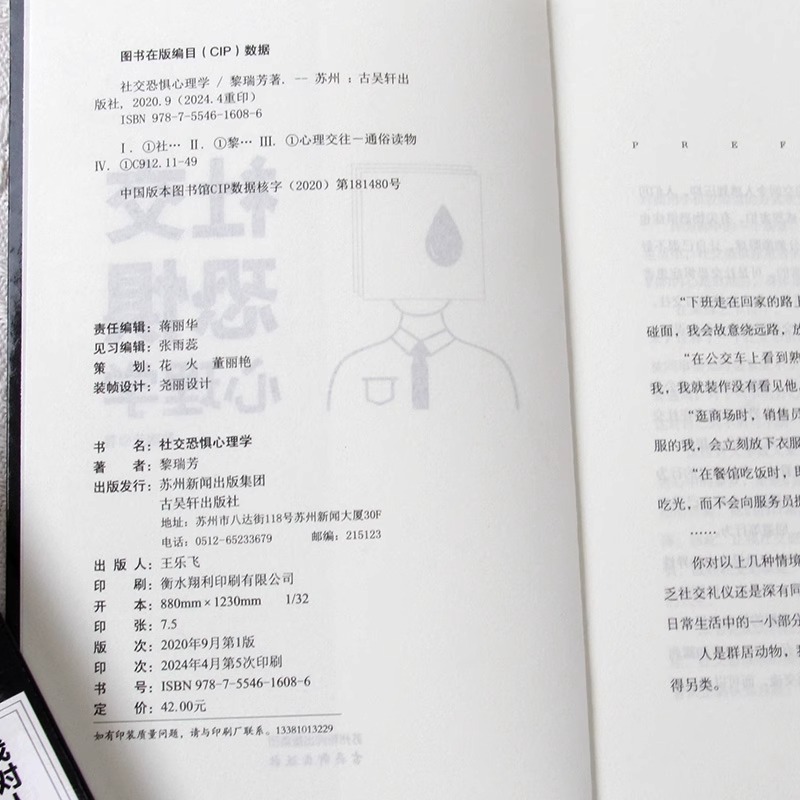 图书在版编目（CIP）数据
社交恐惧心理学 / 黎瑞芳著. -- 苏州 : 古吴轩出
版社, 2020.9（2024.4重印）
ISBN 978-7-5546-1608-6
Ⅰ. ①社… Ⅱ. ①黎… Ⅲ. ①心理交往－通俗读物
Ⅳ. ①C912.11-49
中国版本图书馆CIP数据核字（2020）第181480号
责任编辑：蒋丽华
见习编辑：张雨蕊
策　　划：花　火　董丽艳
装帧设计：尧丽设计
书　　名：社交恐惧心理学
著　　者：黎瑞芳
出版发行：苏州新闻出版集团
古吴轩出版社
地址：苏州市八达街118号苏州新闻大厦30F
电话：0512-65233679　　邮编：215123
出 版 人：王乐飞
印　　刷：衡水翔利印刷有限公司
开　　本：880mm×1230mm　1/32
印　　张：7.5
版　　次：2020年9月第1版
印　　次：2024年4月第5次印刷
书　　号：ISBN 978-7-5546-1608-6
定　　价：42.00元
如有印装质量问题，请与印刷厂联系。13381013229
P R E F
“下班走在回家的路上
碰面，我会故意绕远路，放
“在公交车上看到熟
我，我就装作没有看见他。
“逛商场时，销售员
服的我，会立刻放下衣服
“在餐馆吃饭时，即
吃光，而不会向服务员提
……
你对以上几种情境
乏社交礼仪还是深有同
日常生活中的一小部分
人是群居动物，我
得另类。
对